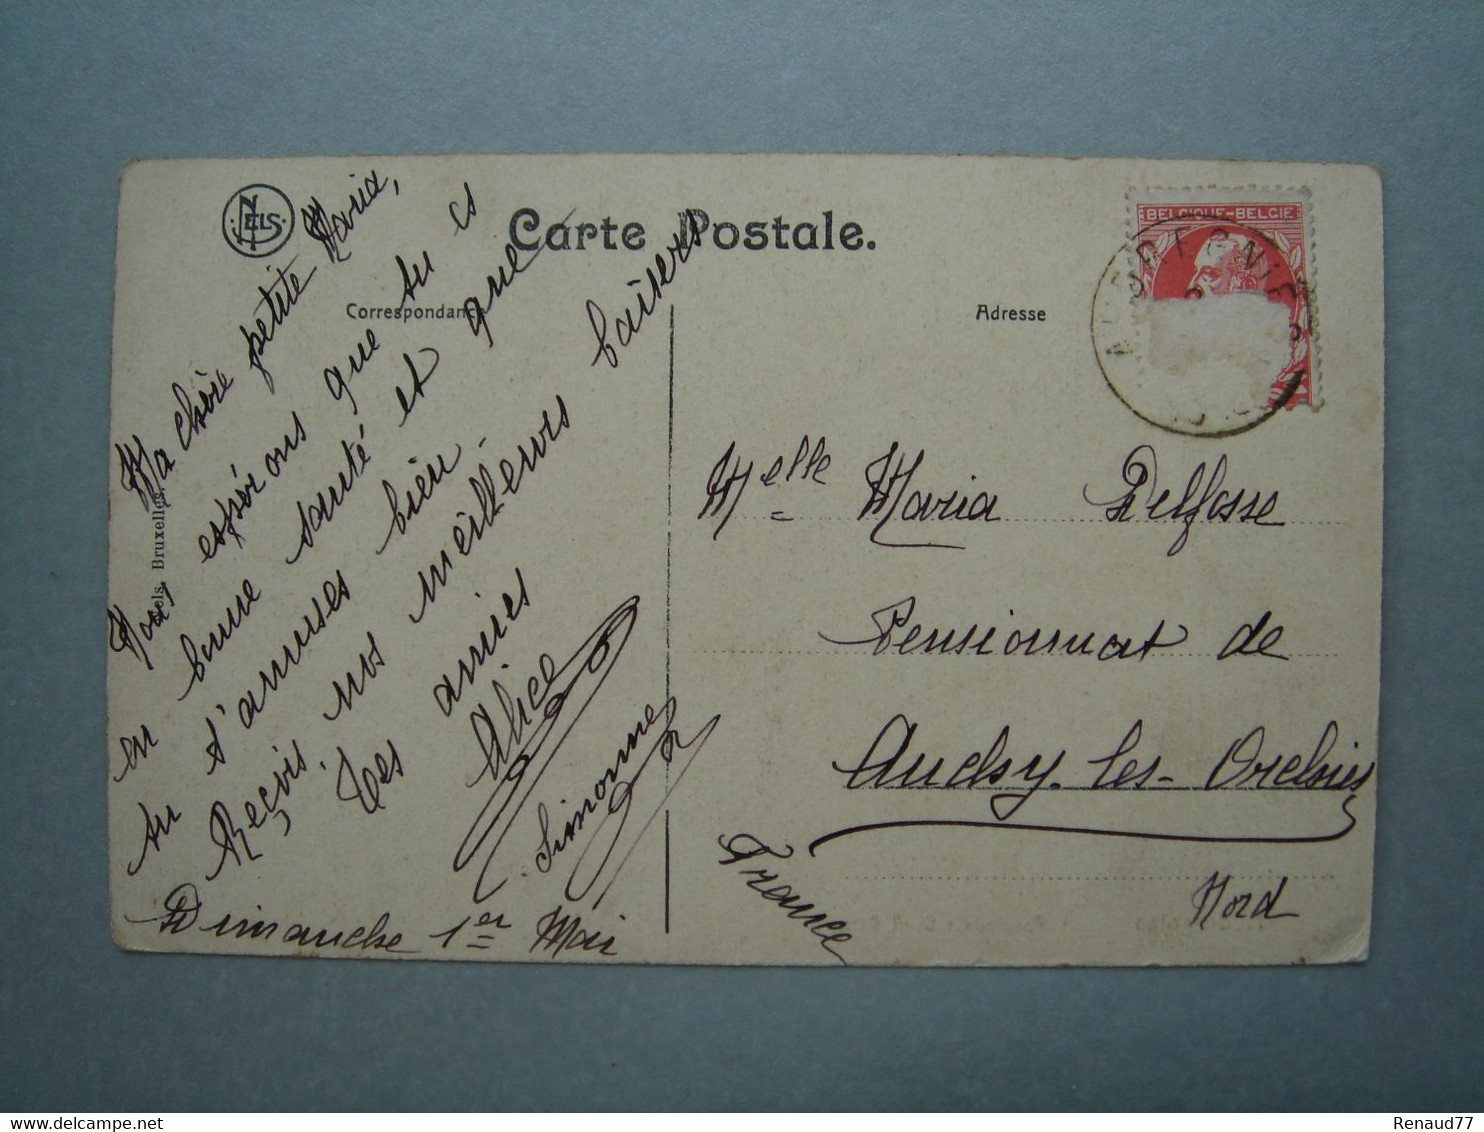 NELS
Carte Postale.
Correspondance
Adresse
Nels, Bruxelles.
BELGIQUE-BELGIE
Ma chère petite Maria,
Nous espérons que tu es
en bonne santé et que
tu t'amuses bien.
Reçois nos meilleurs baisers
Tes amies
Alice
Simonne
Dimanche 1er Mai
Melle Maria Delfosse
Pensionnat de
Auchy-les-Orchies
Nord
France
Renaud77